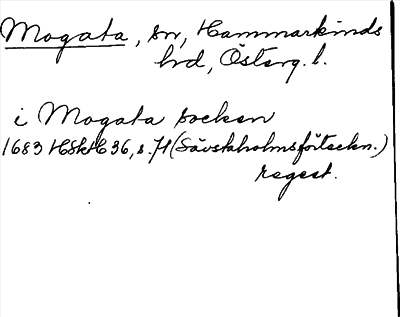 Mogata, sn, Hammarkinds
hd, Österg. l.
i Mogata socken
1683 HSkH 36, s. 71 (Sävstaholmsförteckn.)
regest.